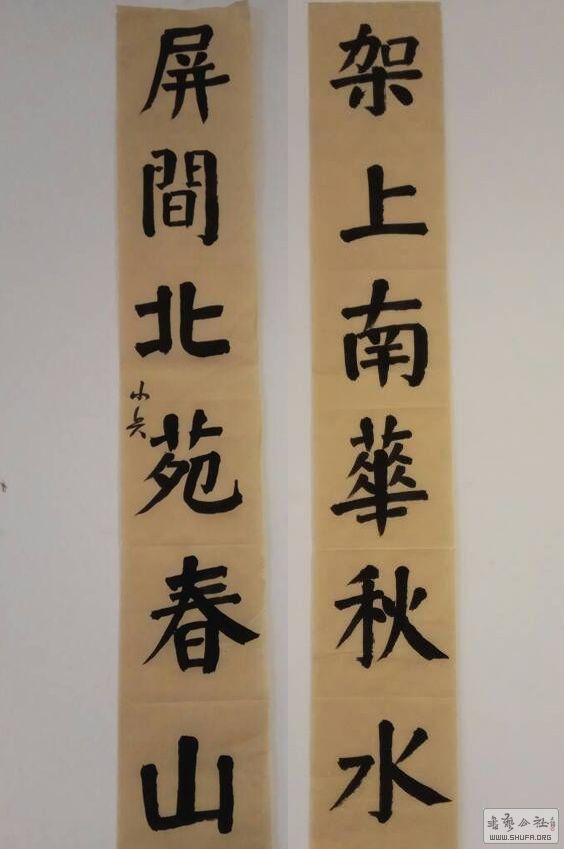 架上南華秋水
屏間北苑春山
小兵
WWW.SHUFA.ORG